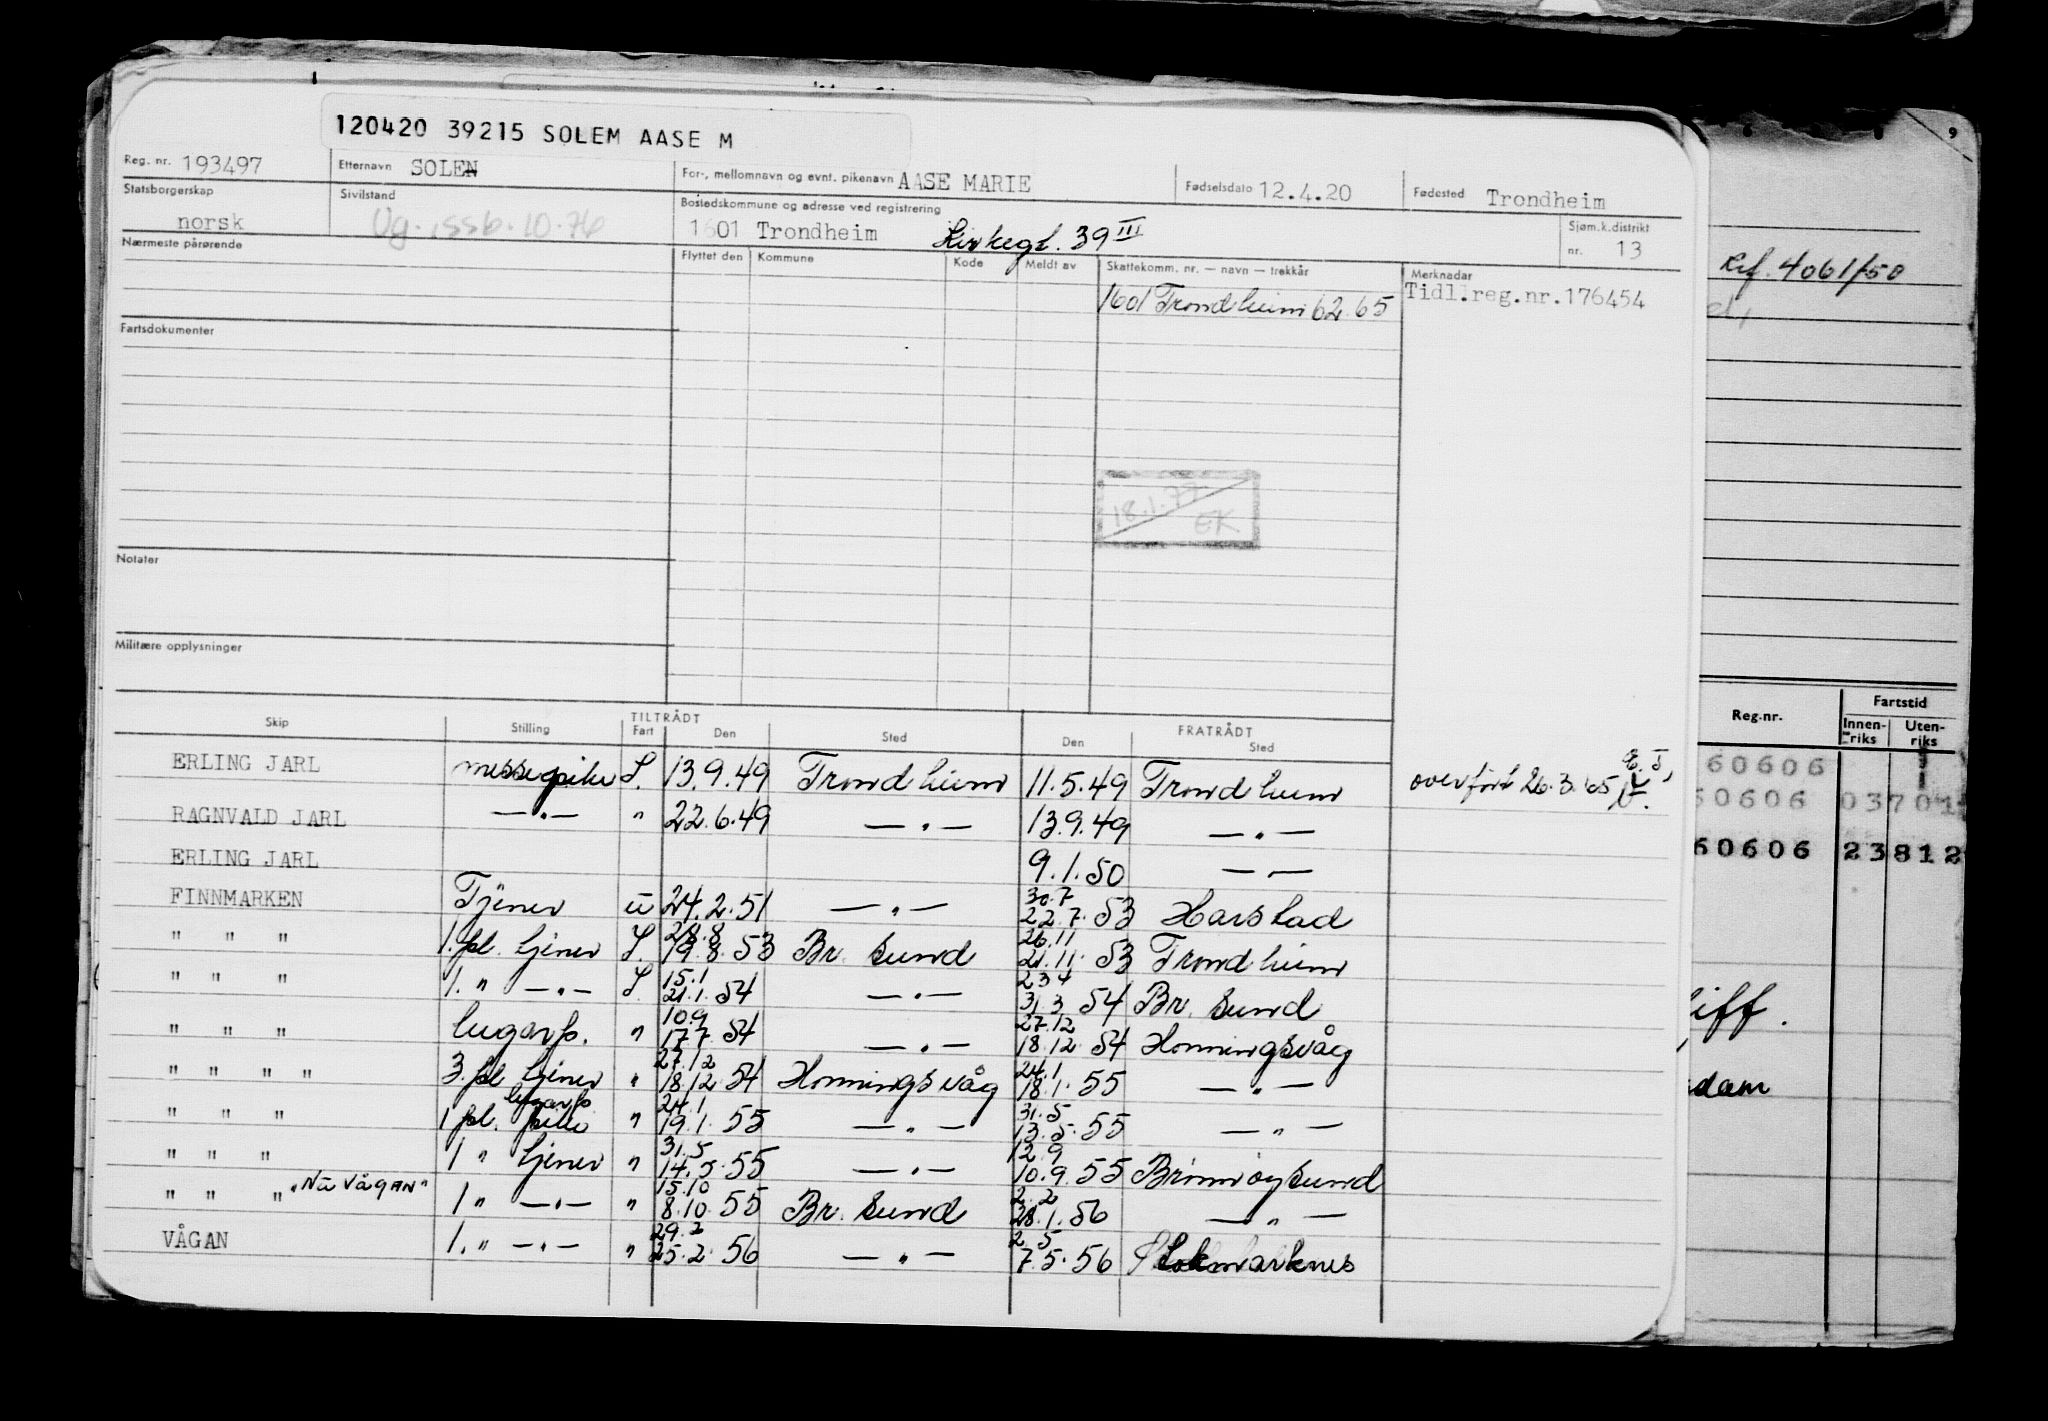 120420 39215 SOLEM AASE M
Reg. nr. 193497 Etternavn SOLEN For-, mellomnavn og evnt. pikenavn AASE MARIE Fødselsdato 12.4.20 Fødested Trondheim
Statsborgerskap norsk Sivilstand Ug., ssb. 10.76 Bostedskommune og adresse ved registrering 1601 Trondheim Kirkegt. 39 III Sjøm.k.distrikt nr. 13
Nærmeste pårørende Flyttet den Kommune Kode Meldt av Skattekomm. nr. — navn — trekkår Merknader
1601 Trondheim 62.65 Tidl.reg.nr.176454
Fartsdokumenter
18.1.77 EK
Notater
Militære opplysninger
TILTRÅDT FRATRÅDT
Skip Stilling Fart Den Sted Den Sted
ERLING JARL messepike L. 13.9.49 Trondheim 11.5.49 Trondheim overført 26.3.65
RAGNVALD JARL —"— " 22.6.49 —"— 13.9.49 —"—
ERLING JARL 9.1.50 —"—
FINNMARKEN Tjener u 24.2.51 —"— 30.7 22.7.53 Harstad
" " " 1. pl. tjener L. 28.8 19.8.53 Br. sund 26.11 21.11.53 Trondheim
" " " 1. " —"— L. 15.1 21.1.54 —"— 23 4 31.3 54 Br. sund
" " " lugarp. " 10.9 17.7 54 —"— 27.12 18.12.54 Honningsvåg
" " " " 3. pl tjener " 27.12 18.12.54 Honningsvåg 24.1 18.1.55 —"—
" " " 1 pl. lugarp. pike " 24.1 19.1.55 —"— 31.5 13.5.55 —"—
" " " 1 " tjener " 31.5 14.5.55 —"— 12.9 10.9.55 Brønnøysund
" " " "Nå VÅGAN" 1 " —"— " 15.10 8.10.55 Br. sund 2.2 28.1.56 —"—
VÅGAN 1. " —"— " 29.2 25.2.56 —"— 2 5 7.5.56 Stokmarknes
9
Ref. 4061/50
Reg.nr. Fartstid
Innen-riks Uten-riks
60606
60606 03701
60606 23812
iff.
dam